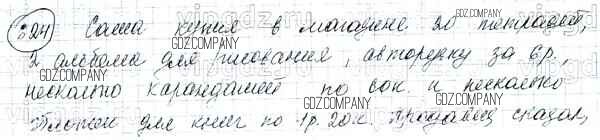 824) Саша купил в магазине 20 тетрадей,
2 альбома для рисования, авторучку за 6р.,
несколько карандашей по 50к. и несколько
пло для книг по 1р. 20к. Продавец сказал,
GDZ.COMPANY
GDZ.COMPANY
GDZ.COMPANY
GDZ.COMPANY